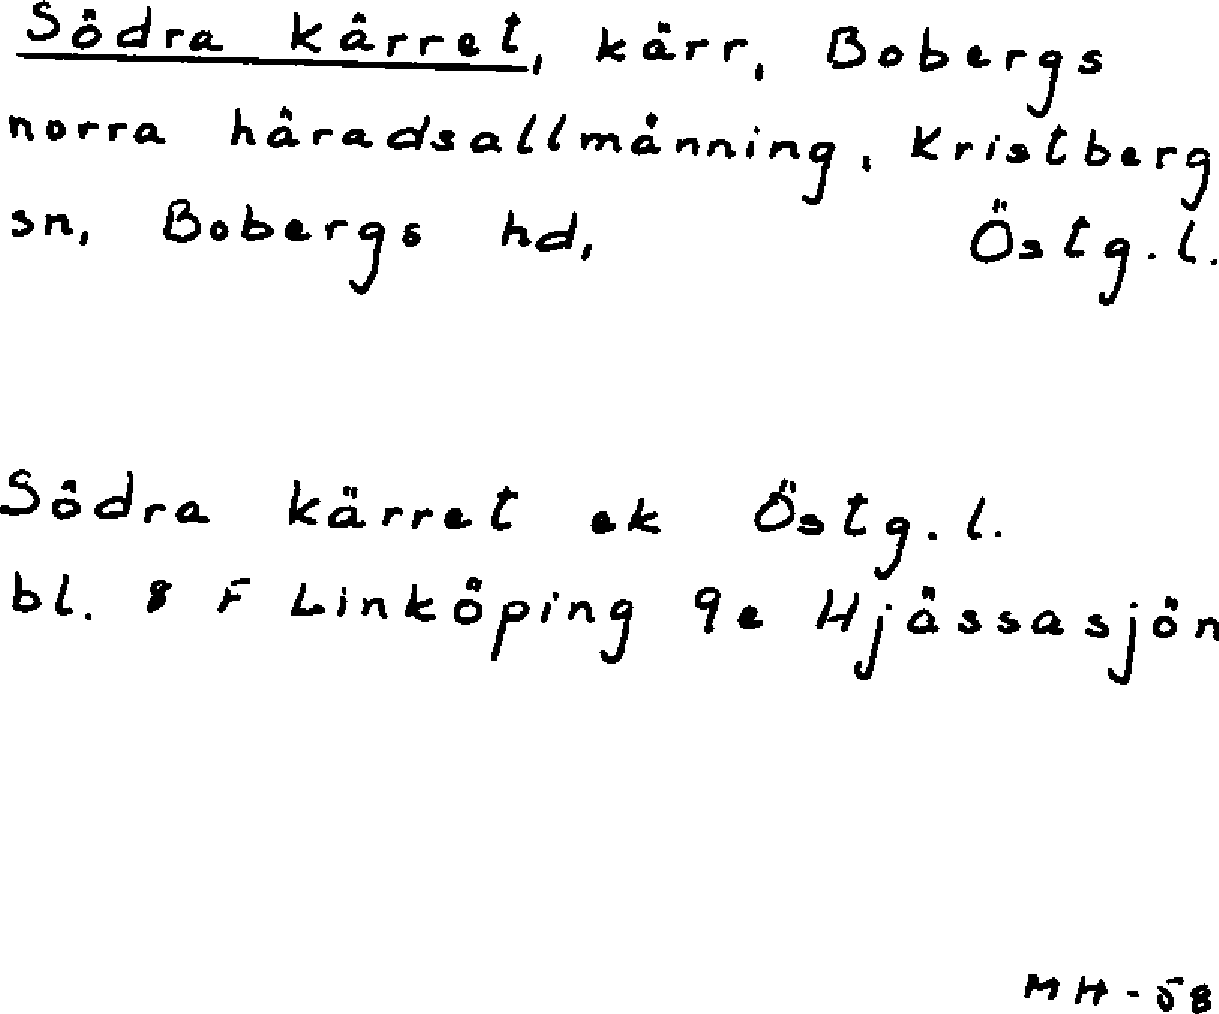 Södra kärret, kärr, Bobergs
norra häradsallmänning, Kristberg
sn, Bobergs hd, Östg.l.
Södra kärret ek Östg.l.
bl. 8 F Linköping 9e Hjässasjön
MH-58